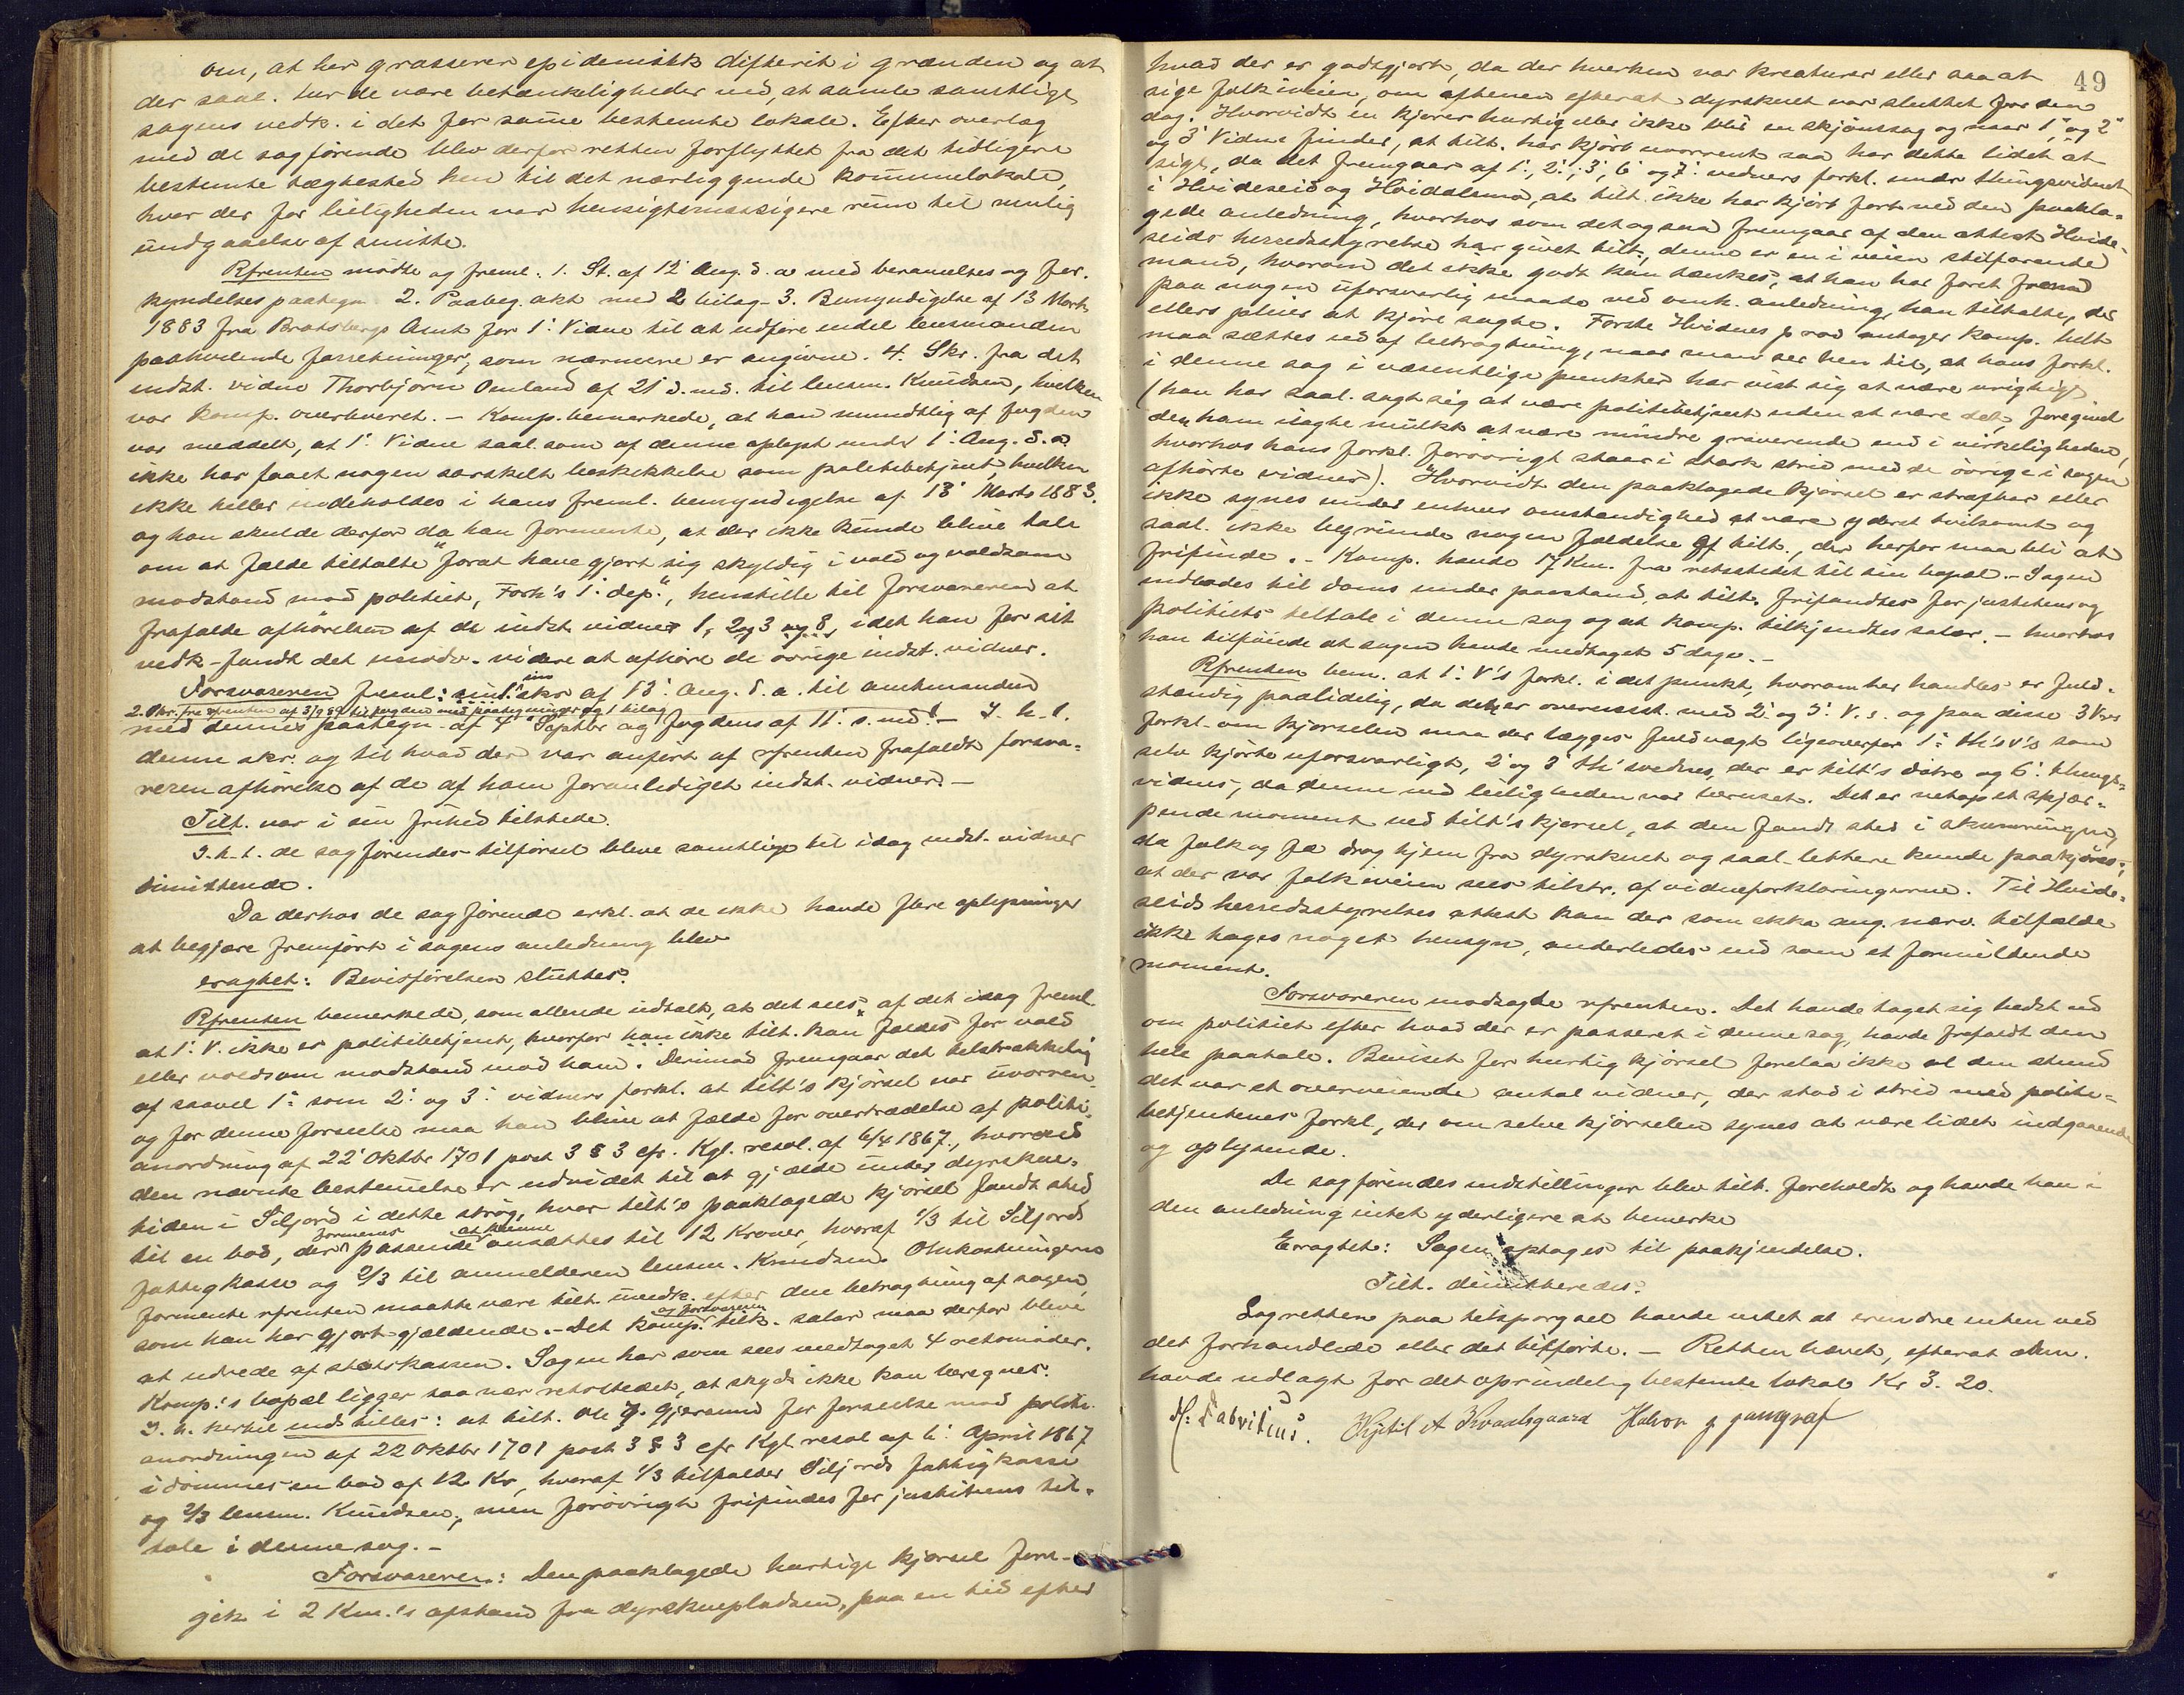 om, at her grasserer epidemisk difterit i grænden og at
der saal. turde være betænkeligheder ved, at samle samtlige
sagens vedk. i det for samme bestemte lokale. Efter overlæg
med de sagførende blev derfor retten forflyttet fra det tidligere
bestemte tægtested hen til det nærliggende kommunelokale,
hvor der for leiligheden var hensigtsmæssigere rum til mulig
undgaaelse af smitte.
Rfrenten mødte og freml: 1. St. af 12' Aug. d. a. med berammelses og for-
kyndelsespaategn 2. Paabeg. akt med 2 bilag - 3. Bemyndigelse af 13 Marts
1883 fra Bratsbergs Amt for 1' Vidne til at udføre endel lensmanden
paahvilende forretninger, som nærmere er angivne. 4. Skr. fra det
indst. vidne Thorbjørn Omland af 21' d. md. til lensm. Knudsen, hvilken
var komp. overleveret. - Komp. bemærkede, at han mundtlig af fogden
var meddelt, at 1' Vidne saal. som af denne oplyst under 1' Aug. d. a.
ikke har faaet nogen særskilt beskikkelse som politibetjent, hvilken
ikke heller indeholdes i hans freml. bemyndigelse af 13' Marts 1883.
og han skulde derfor da han formente, at der ikke kunde blive tale
om at fælde tiltalte "forat have gjort sig skyldig i vold og voldsom
modstand mod politiet, Forh's 1' dep.", henstille til forsvareren at
frafalde afhørelsen af de indst. vidner 1, 2 og 3 og 8, idet han for sit
vedk. fandt det unødv. videre at afhøre de øvrige indst. vidner.
Forsvareren freml: sin 1. skr af 13' Aug. d. a. til amtmanden
2. Skr. fra rfrenten af 3/9 89 til fogden med paategninger og 1 bilag
med dennes paategn. af 4' Septbr og fogdens af 11' s. md. - I. h. t.
denne skr. og til hvad der var anført af rfrenten frafaldt forsva-
reren afhørelse af de af ham foranlediget indst. vidner. -
Tilt. var i sin frihed tilstede.
I. h. t. de sagførendes tilførsel bleve samtlige til idag indst. vidner
dimitterede.
Da derhos de sagførende erkl. at de ikke havde flere oplysninger
at begjære fremført i sagens anledning blev
eragtet: Bevisførelsen sluttes.
Rfrenten bemærkede, som allerede udtalt, at det sees af det idag freml.
at 1' V. ikke er politibetjent, hvorfor han ikke tilt. kan fældes for vold
eller voldsom modstand mod ham. Derimod fremgaar det tilstrækkelig
af saavel 1' som 2' og 3' vidners forkl. at tilt's kjørsel var uvorren
og for denne forseelse maa han blive at fælde for overtrædelse af politi-
anordning af 22' Oktbr 1701 post 3 § 3 cfr. Kgl. resol. af 6/4 1867., hvorved
den nævnte bestemmelse er udvidet til at gjælde under dyrskue-
tiden i Siljord i dette strøg, hvor tilt's paaklagede kjørsel fandt sted
til en bod, der formenes passende at kunne ansættes til 12 Kroner, hvoraf 1/3 til Siljords
fattigkasse og 2/3 til anmelderen lensm. Knudsen. Omkostningerne
formente rfrenten maatte være tilt. uvedk. efter den betragtning af sagen,
som han har gjort gjældende. - Det komp. og forsvareren tilk. salær maa derfor blive
at udrede af statskassen. Sagen har som sees medtaget 4 retsmøder.
Komp.'s bopæl ligger saa nær retsstedet, at skyds ikke kan beregnes.
I. h. hertil indstilles: at tilt. Ole J. Gjersund for forseelse mod politi-
anordningen af 22 Oktbr 1701 post 3 § 3 cfr Kgl. resol af 6' April 1867
idømmes en bod af 12 Kr, hvoraf 1/3 tilfalder Siljords fattigkasse
og 2/3 lensm. Knudsen, men forøvrigt frifindes for justitiens til-
tale i denne sag. -
Forsvareren: Den paaklagede hurtige kjørsel fore-
gik i 2 Km.'s afstand fra dyrskuepladsen, paa en tid efter
49
hvad der er godtgjort, da der hverken var kreaturer eller saa at
sige folk i veien, om aftenen efterat dyrskuet var sluttet for den
dag. Hvorvidt en kjører hurtig eller ikke blir en skjønssag og naar 1' og 2'
og 3' Vidne finder, at tilt. har kjørt uvorrent saa har dette lidet at
sige, da det fremgaar af 1', 2', 3', 6' og 7' vidners forkl. under thingsvidnet
i Hvideseid og Hviddalsmo, at tilt. ikke har kjørt fort ved den paakla-
gede anledning, hvorhos som det og saa fremgaar af den attest Hvide-
seids herredsstyrelse har givet tilt., denne er en i veien stilfarende
mand, hvorom det ikke godt kan tænkes, at han har faret frem
paa nogen uforsvarlig maate ved omh. anledning, han tiltalte, der
ellers pleier at kjøre sagte. Første Hvidnes prov antager komp. helt
maa sættes ud af betragtning, naar man ser hen til, at hans forkl.
i denne sag i væsentlige punkter har vist sig at være urigtige
(han har saal. sagt sig at være politibetjent uden at være det, foregivet
den ham ilagte mulkt at være mindre graverende end i virkeligheden,
hvorhos hans forkl. forøvrigt staar i stærk strid med de øvrige i sagen
afhørte vidner). Hvorvidt den paaklagede kjørsel er strafbar eller
ikke synes under enhver omstændighed at være yderst tvilsomt og
saal. ikke begrunde nogen fældelse af tilt., der herfor maa bli at
frifinde. - Komp. havde 17 Km. fra retsstedet til sin bopæl. - Sagen
indlodes til doms under paastand, at tilt. frifandtes for justitiens og
politiets tiltale i denne sag og at komp. tilkjendtes salær. - hvorhos
han tilføiede at sagen havde medtaget 5 dage. -
Rfrenten bem. at 1' V's forkl. i det punkt, hvorom her handles er fuld-
stændig paalidelig, da den er overensst. med 2' og 3' V.s. og paa disse 3 V.rs
forkl. om kjørselen maa der lægges fuld vægt ligeoverfor 1' th's v's som
selv kjørte uforsvarligt, 2' og 3' th' svidnes, der er tilt's døtre og 6' things-
vidnes, da denne ved leiligheden var beruset. Det er netop et skjær-
pende moment ved tilt's kjørsel, at den fandt sted i skumringen,
da folk og fæ drog hjem fra dyrskuet og saal. lettere kunde paakjøres;
at der var folk i veien sees tilstr. af vidneforklaringerne. Til Hvide-
seids herredsstyrelses attest kan der som ikke ang. nærv. tilfælde
ikke tages noget hensyn, anderledes end som et formildende
moment.
Forsvareren modsagde rfrenten. Det havde taget sig bedst ud
om politiet efter hvad der er passeret i denne sag, havde frafaldt den
hele paatale. Beviset for hurtig kjørsel forelaa ikke al den stund
det var et overveiende antal vidner, der stod i strid med politi-
betjentenes forkl, der om selve kjørselen synes at være lidet indgaaende
og oplysende.
De sagførendes indstillinger blev tilt. foreholdt og havde han i
den anledning intet yderligere at bemerke
Eragtet: Sagen optages til paakjendelse.
Tilt. dimitteredes.
Lagretten paa tilspørgsel havde intet at erindre enten ved
det forhandlede eller det tilførte. - Retten hævet, efterat Adm.
havde udlagt for det oprindelig bestemte lokale Kr 3. 20.
H: Fabritius. Kjitil A Kvaalsgaard Halvor